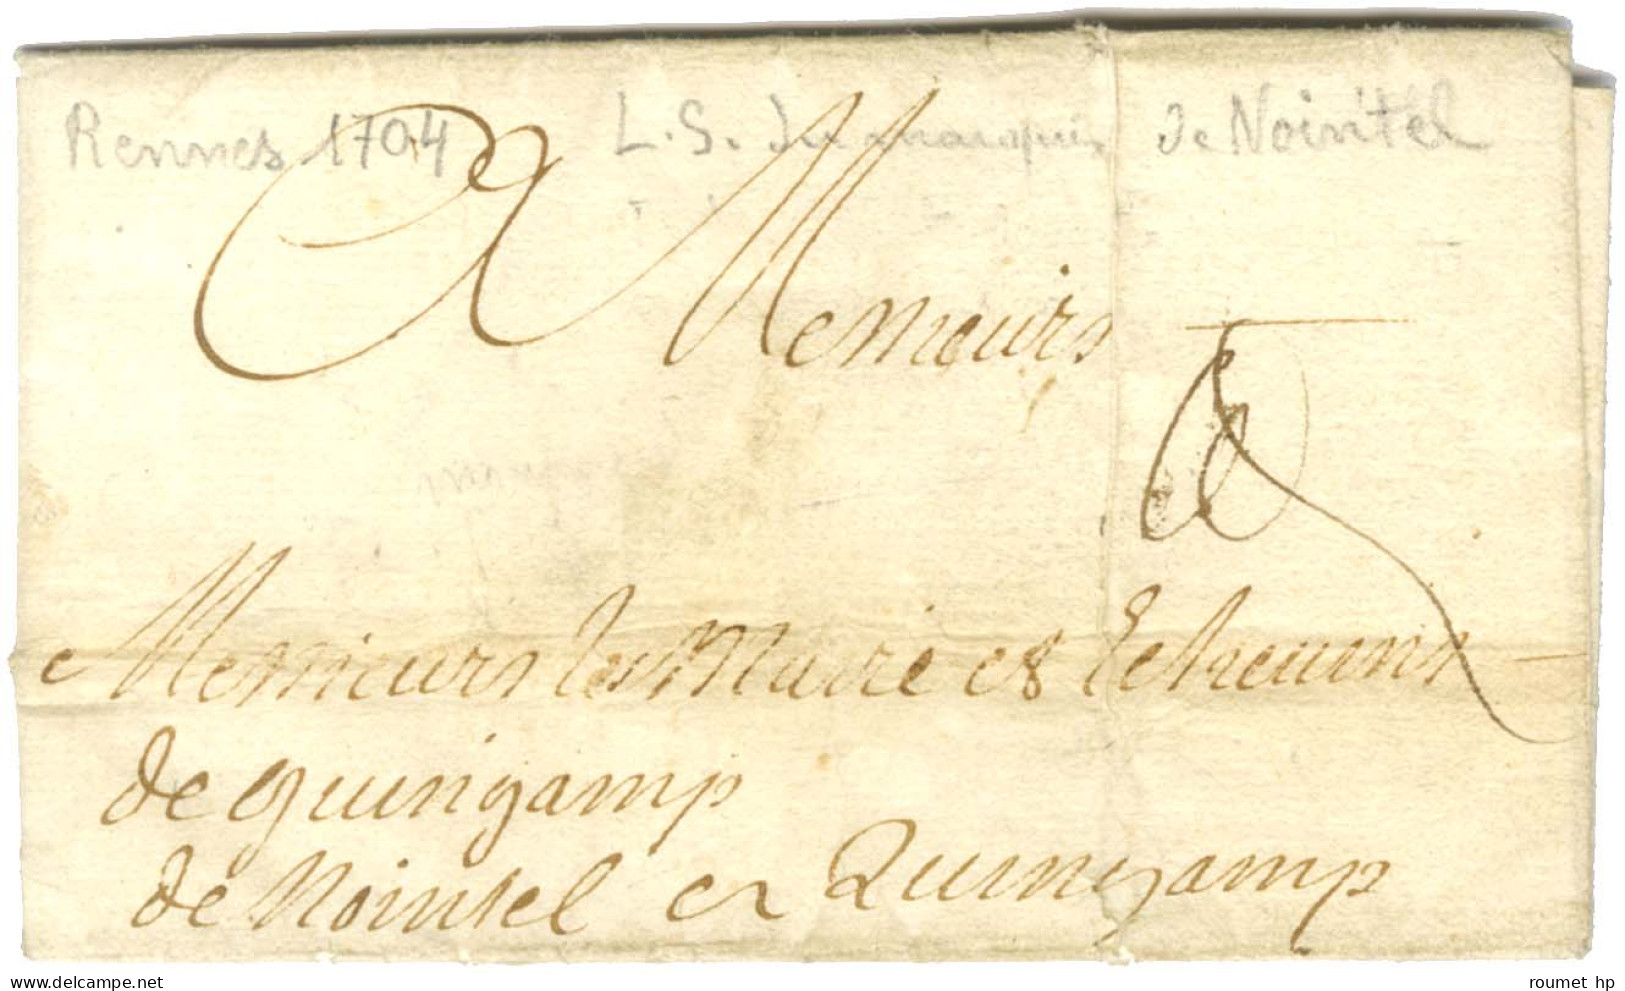 Rennes 1704 L.S. du marquis de Nointel
A Messieurs
Messieurs les Maire et Eschevins
de guingamp
de Nointel A Quingamp
roumet hp